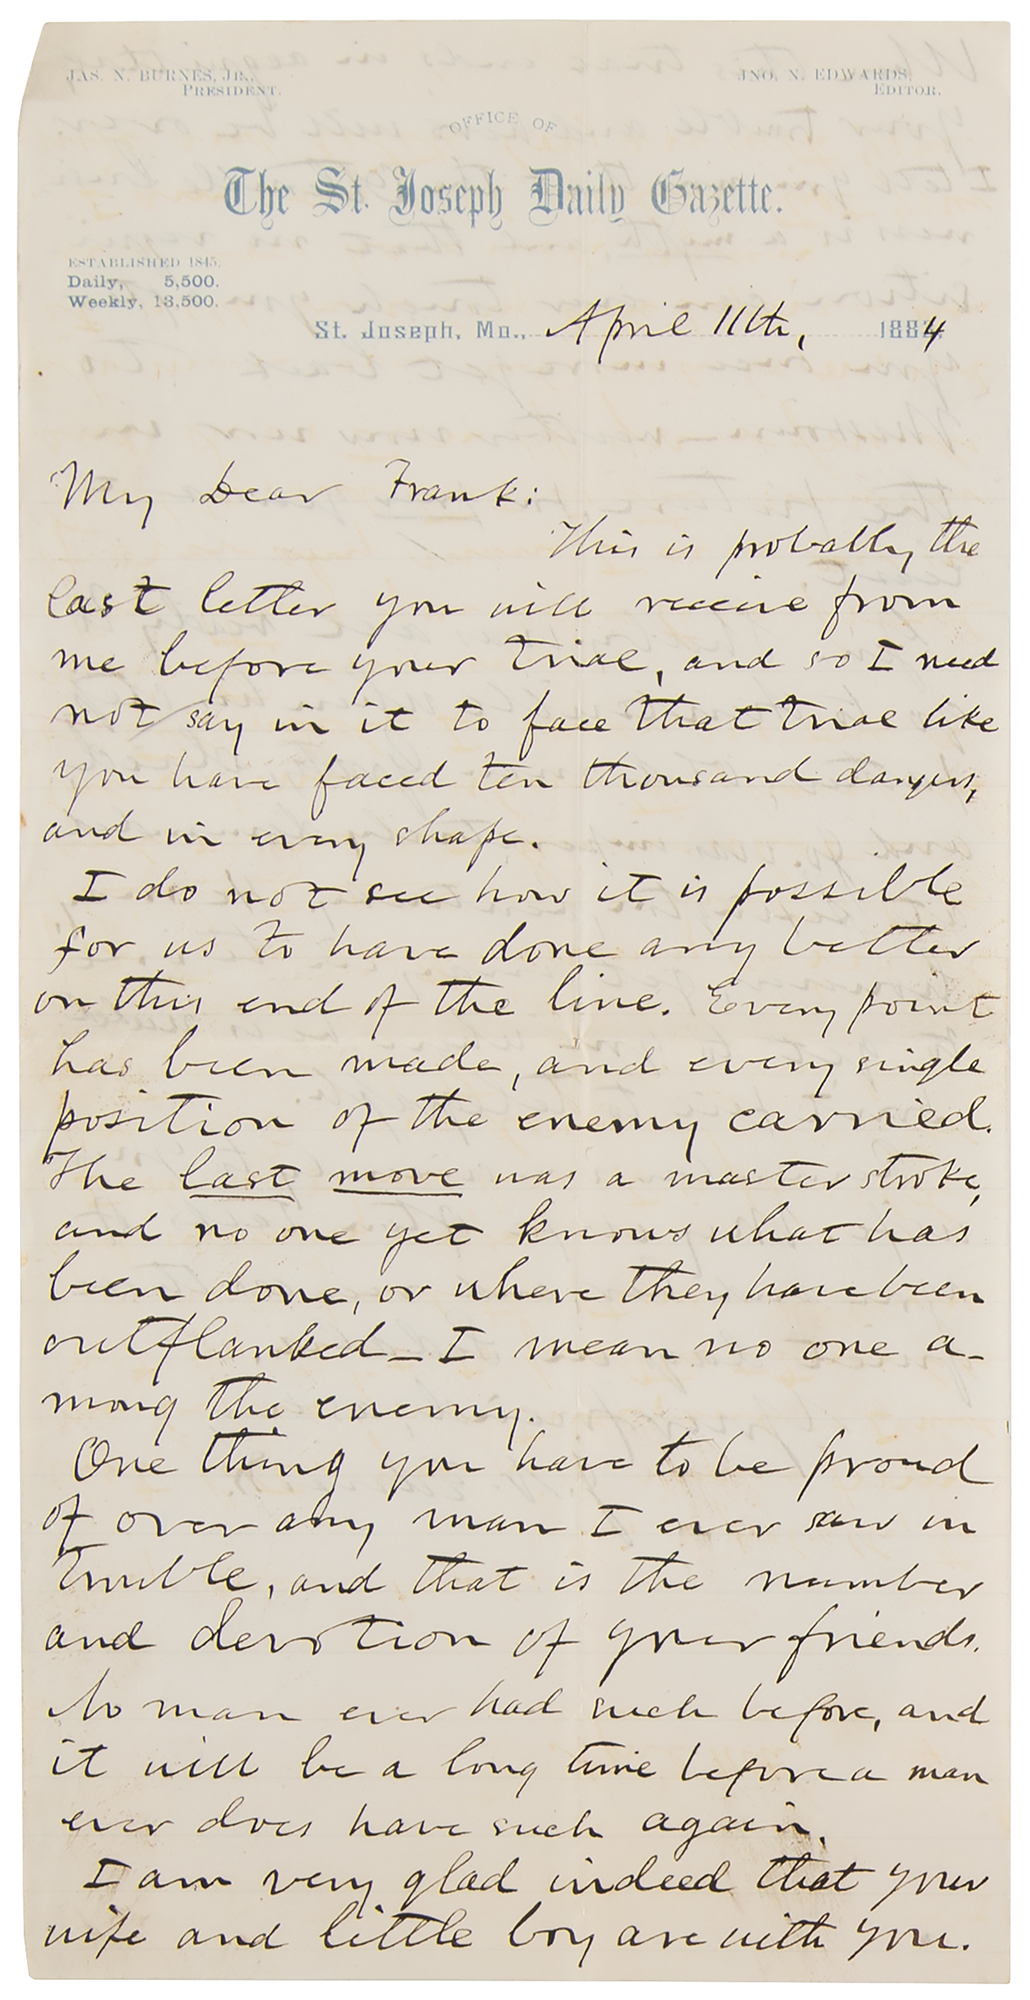 JAS. N. BURNES, JR.,
PRESIDENT.
JNO. N. EDWARDS,
EDITOR.
OFFICE OF
The St. Joseph Daily Gazette.
ESTABLISHED 1845.
Daily, 5,500.
Weekly, 13,500.
St. Joseph, Mo., April 11th, 1884
My Dear Frank:
This is probably the
last letter you will receive from
me before your trial, and so I need
not say in it to face that trial like
you have faced ten thousand dangers,
and in every shape.
I do not see how it is possible
for us to have done any better
on this end of the line. Every point
has been made, and every single
position of the enemy carried.
The last move was a master stroke,
and no one yet knows what has
been done, or where they have been
outflanked — I mean no one a-
mong the enemy.
One thing you have to be proud
of over any man I ever saw in
trouble, and that is the number
and devotion of your friends.
No man ever had such before, and
it will be a long time before a man
ever does have such again.
I am very glad indeed that your
wife and little boy are with you.